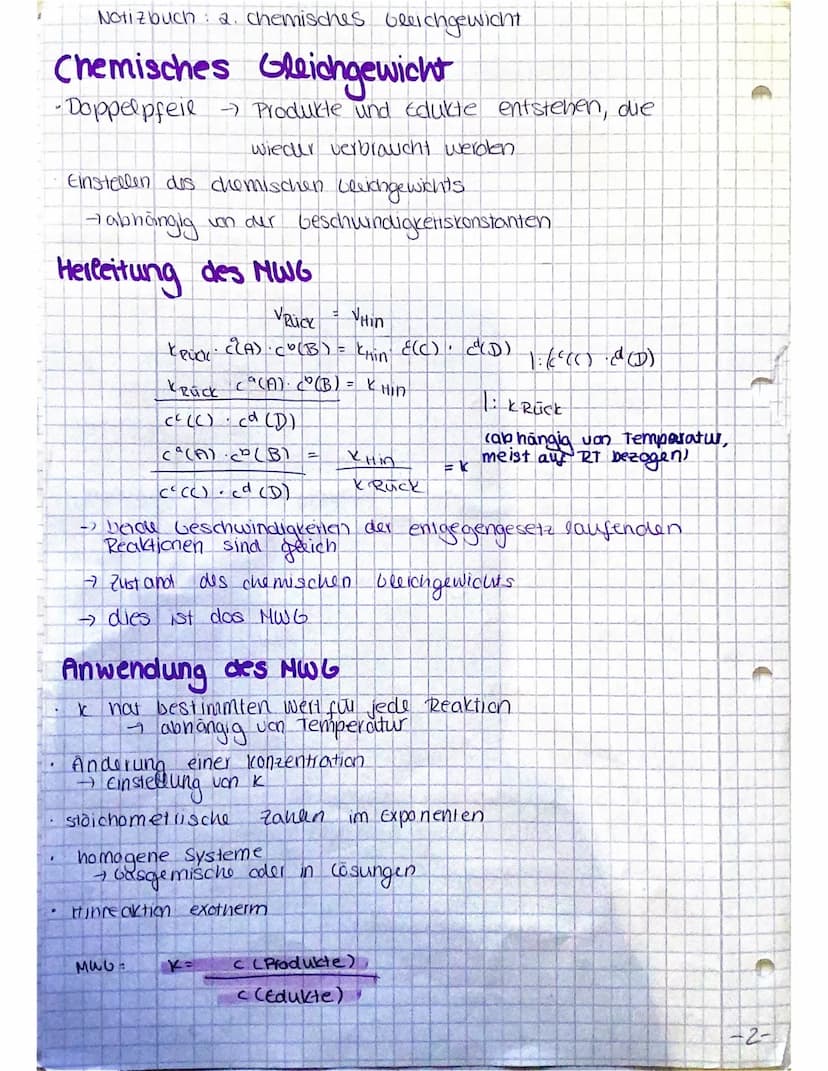 Notizbuch : 2. chemisches Gleichgewicht
Chemisches Gleichgewicht
· Doppelpfeil → Produkte und Edukte entstehen, die
wieder verbraucht werden
· Einstellen des chemischen Gleichgewichts
→ abhängig von der Geschwindigkeitskonstanten
Herleitung des MWG
vRück = vHin
kRück · cᵃ(A) · cᵇ(B) = kHin · cᶜ(C) · cᵈ(D) |: cᶜ(C) · cᵈ(D)
kRück · cᵃ(A) · cᵇ(B) = kHin
cᶜ(C) · cᵈ(D) |: kRück
cᵃ(A) · cᵇ(B) = kHin = K (abhängig von Temperatur,
meist auf RT bezogen)
cᶜ(C) · cᵈ(D) kRück
→ beide Geschwindigkeiten der entgegengesetz laufenden
Reaktionen sind gleich
→ Zustand des chemischen Gleichgewichts
→ dies ist das MWG
Anwendung des MWG
· K hat bestimmten Wert für jede Reaktion
→ abhängig von Temperatur
· Änderung einer Konzentration
→ Einstellung von K
· stöichometrische Zahlen im Exponenten
· homogene Systeme
→ Gasgemische oder in Lösungen
· Hinreaktion exotherm
MWG: K = c (Produkte)
c (Edukte)
-2-